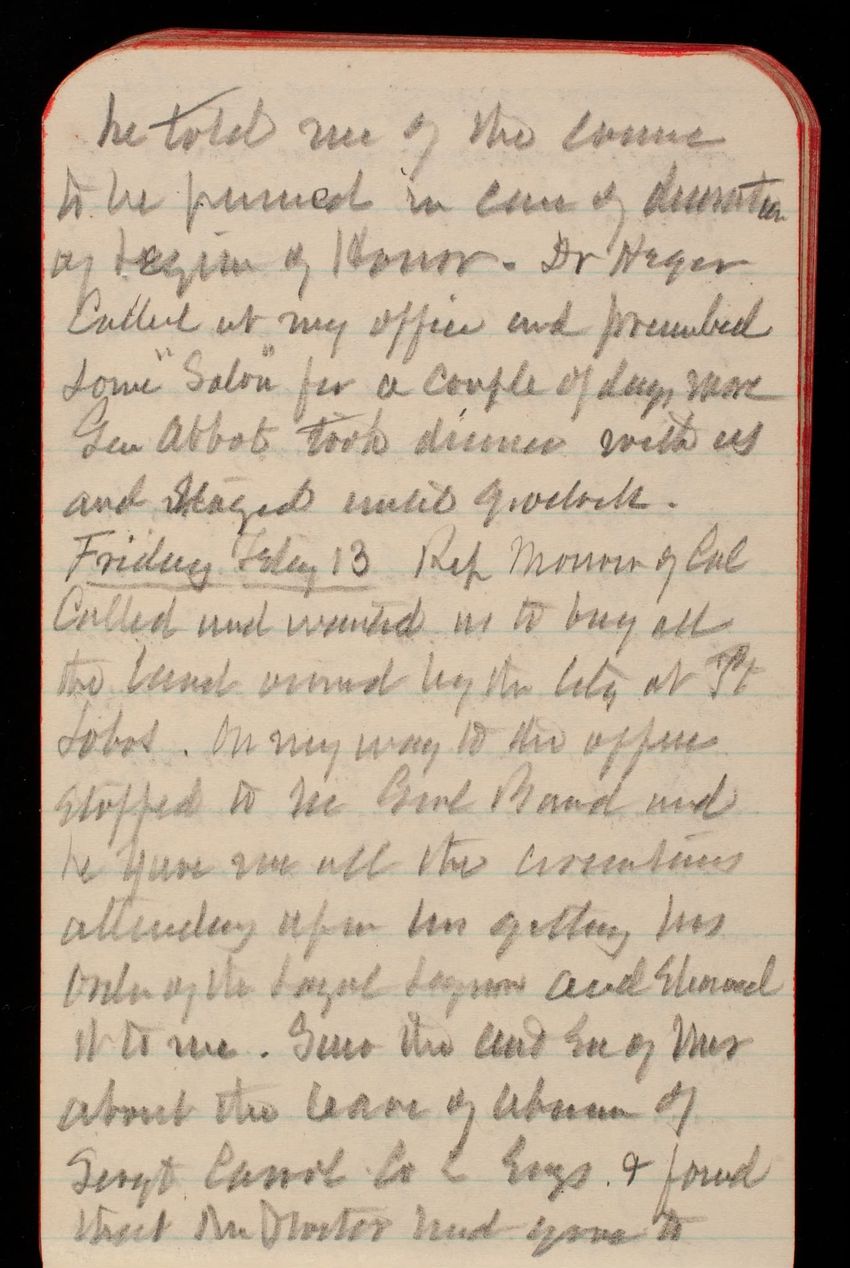 he told me of the course
to be pursued in case of decoration
of Legion of Honor. Dr Heger
Called at my office and prescribed
some "Salol" for a couple of days more
Gen Abbot took dinner with us
and stayed until 9 oclock.
Friday Feby 13 Rep Morrow of Cal
Called and wanted us to buy all
the land owned by the City at Pt
Lobos. On my way to the office
stopped to see Genl Baird and
he gave me all the
attending upon his getting his
Order of the Loyal Legion and showed
it to me. Saw the of War
about the leave of absence of
Sergt Carrol Co C Engs. & found
that the Doctor had gone to